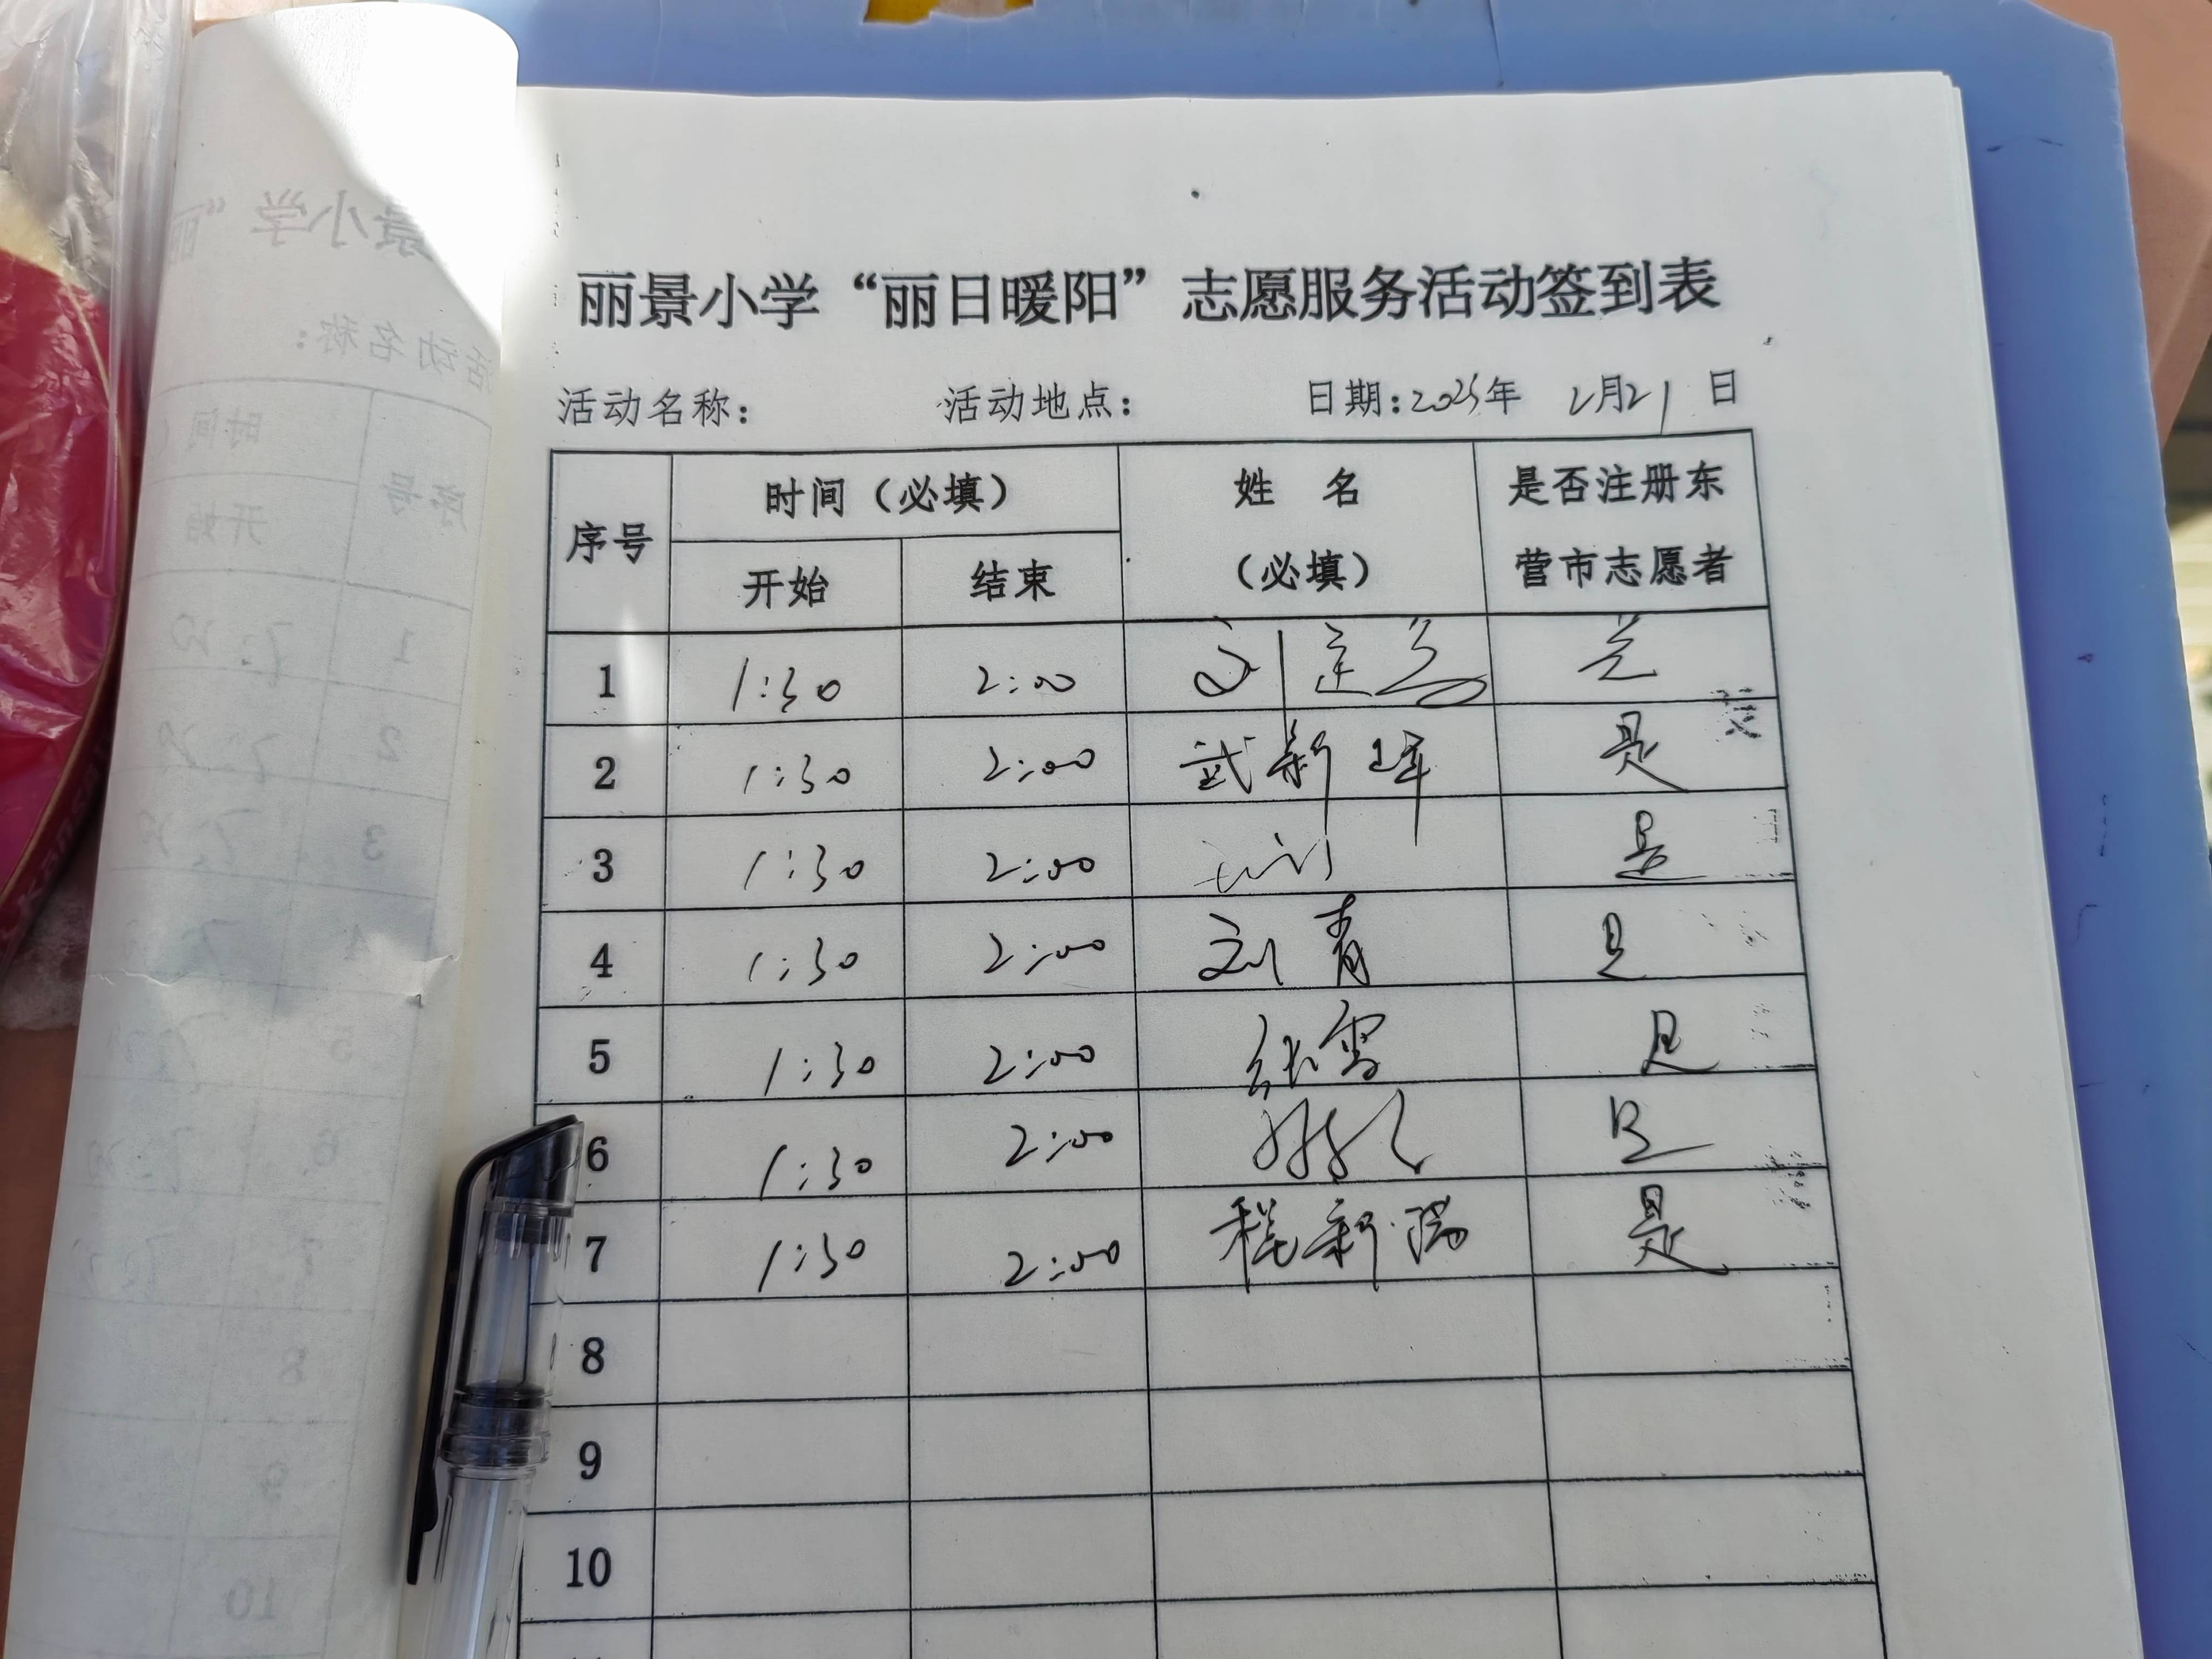 丽景小学“丽日暖阳”志愿服务活动签到表
活动名称： 活动地点： 日期：2025年 2月21日
序号 时间（必填） 姓 名（必填） 是否注册东营市志愿者
开始 结束
1 1:30 2:00 刘 是
2 1:30 2:00 武新峰 是
3 1:30 2:00 是
4 1:30 2:00 刘青 是
5 1:30 2:00 张雪 是
6 1:30 2:00 是
7 1:30 2:00 程新瑞 是
8
9
10